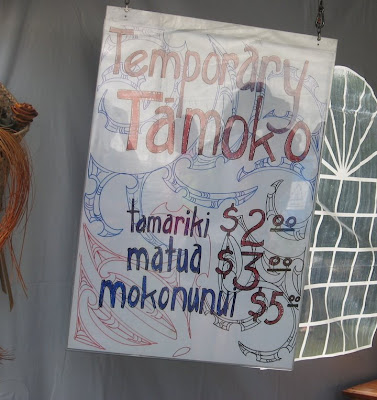 Temporary
Tāmoko
tamariki $2.00
matua $3.00
mokonunui $5.00